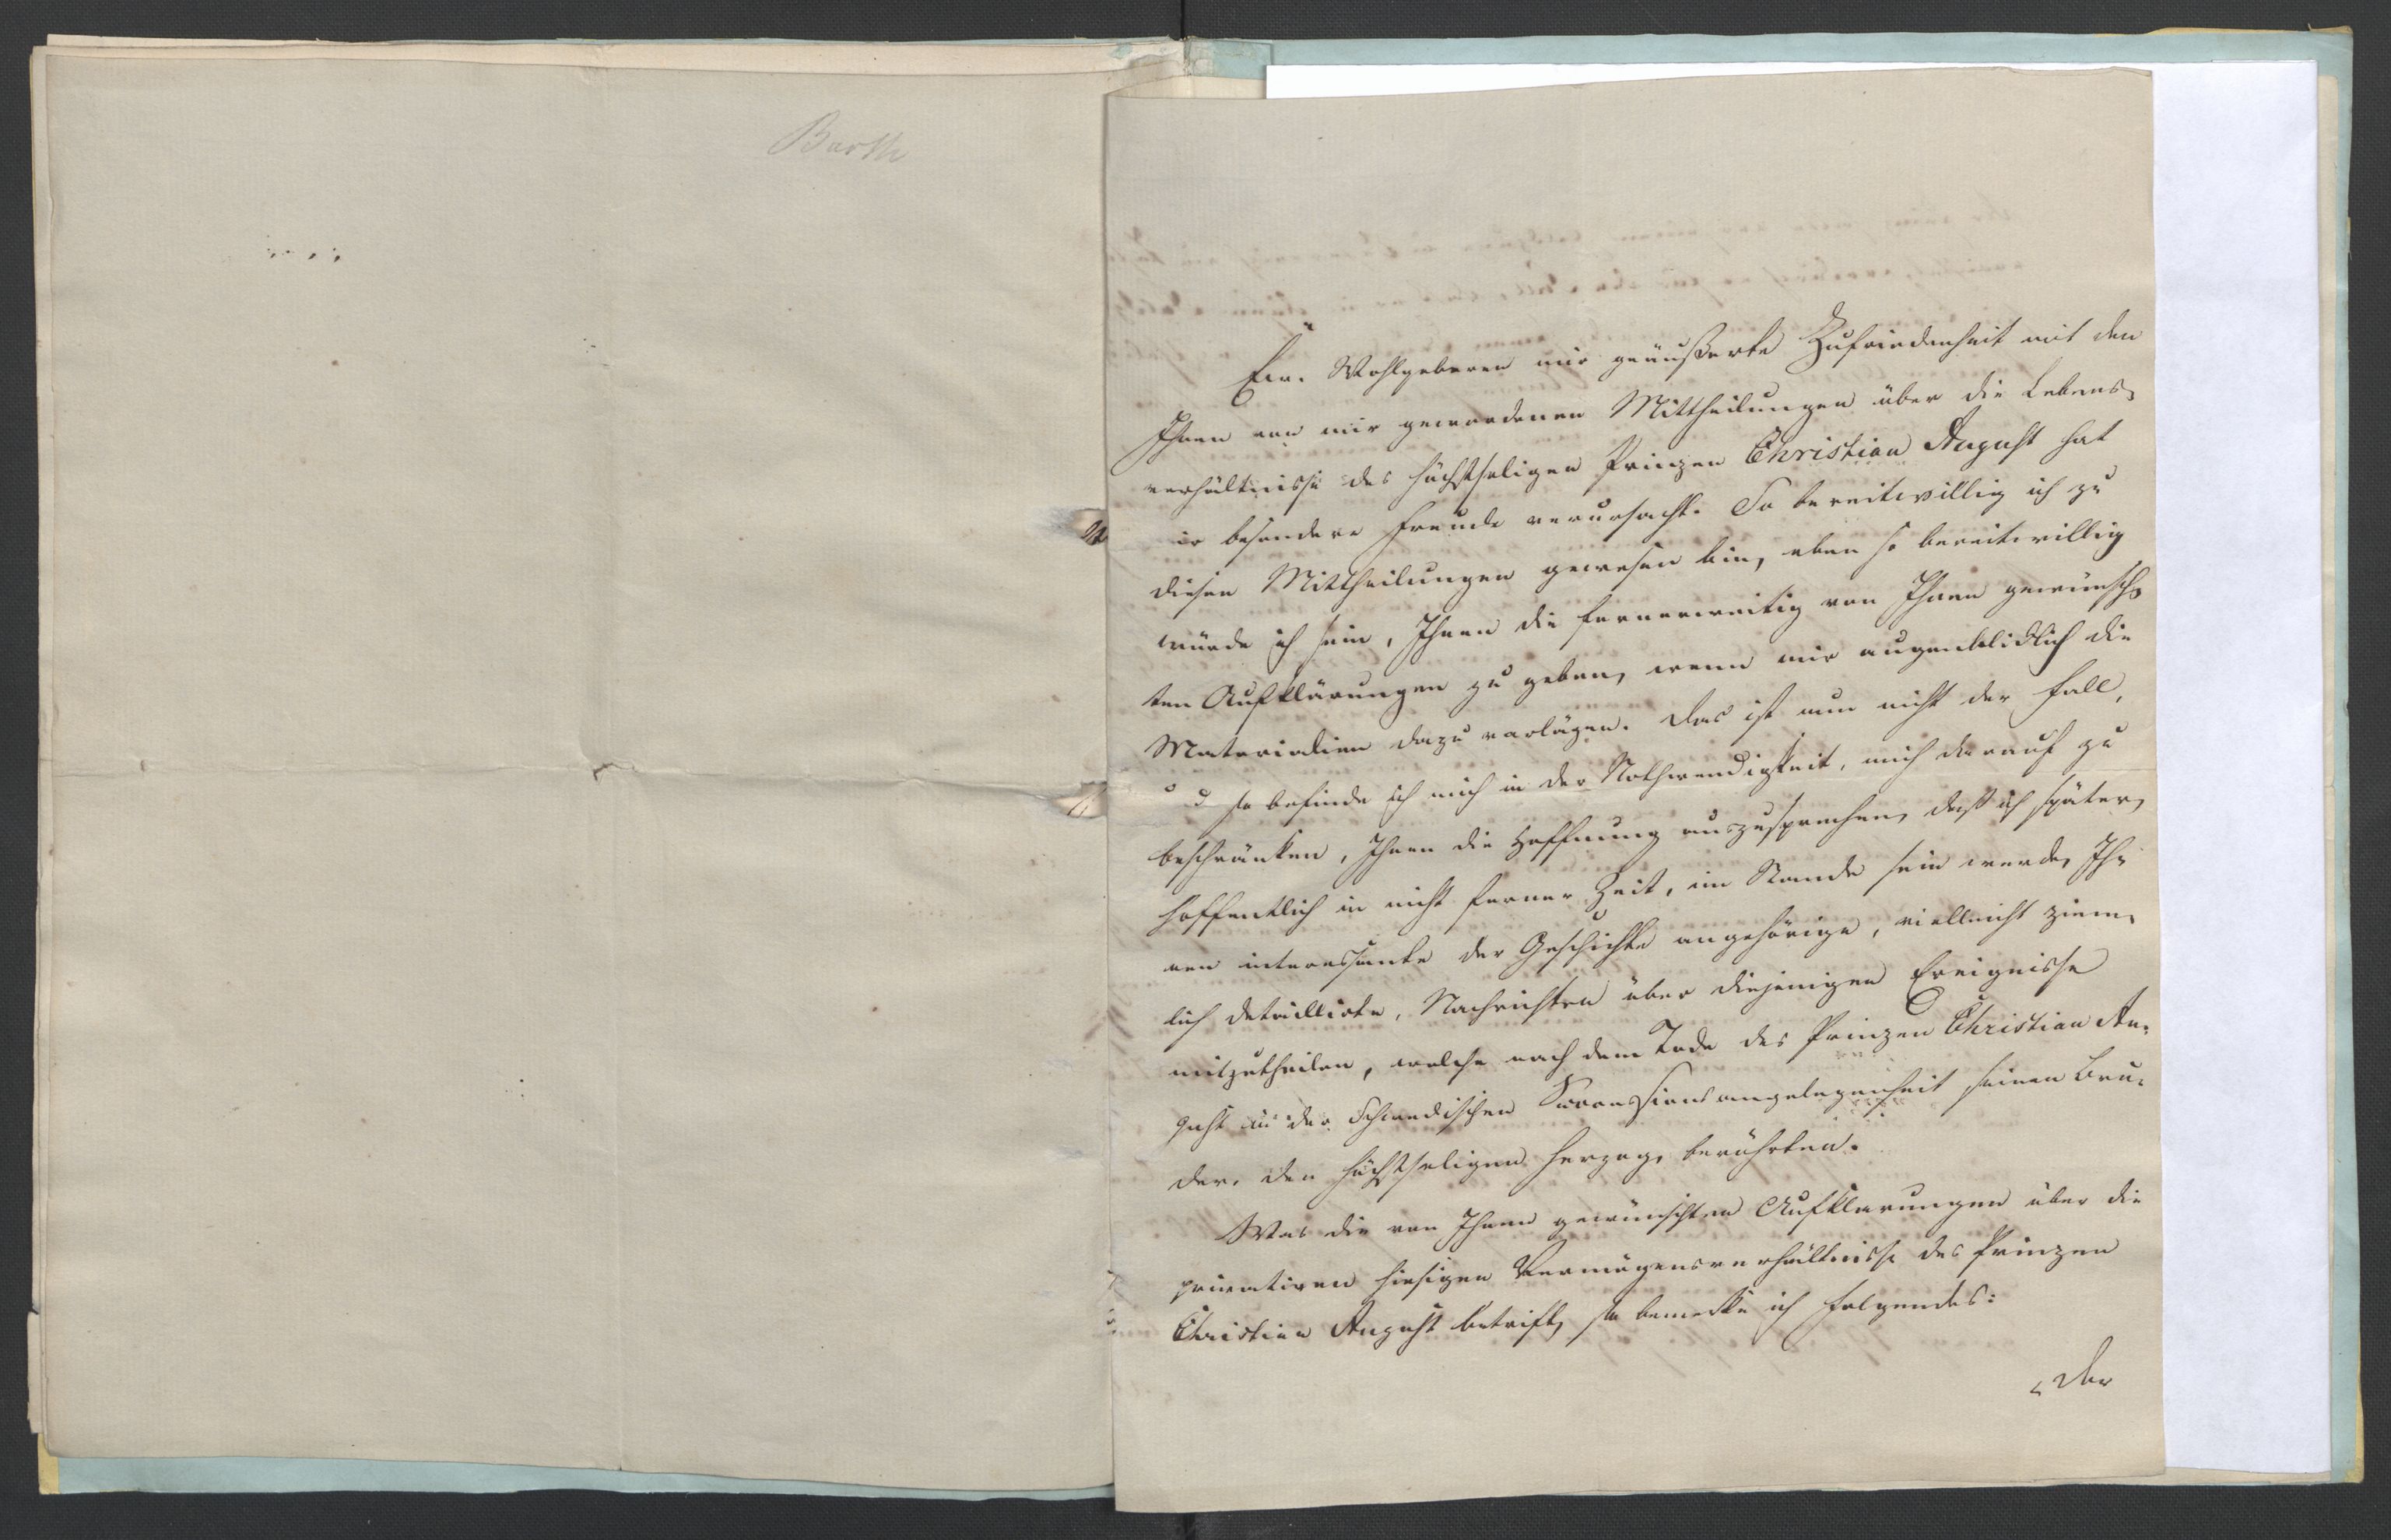 Barth
Ew. Wohlgeboren mir geäußerte Zufriedenheit mit den
Ihnen von mir gewordenen Mittheilungen über die Lebens-
verhältnisse des höchstseligen Prinzen Christian August hat
ir besondere Freude verursacht. So bereitwillig ich zu
diesen Mittheilungen gewesen bin, eben so bereitwillig
würde ich sein, Ihnen die fernerweitig von Ihnen gewünsch-
ten Aufklärungen zu geben, wenn mir augenblicklich die
Materialien dazu vorlägen. Das ist nun nicht der Fall,
u d so befinde ich mich in der Nothwendigkeit, mich darauf zu
beschränken, Ihnen die Hoffnung auszusprechen, daß ich später,
hoffentlich in nicht ferner Zeit, im Stande sein werde, Ih-
nen interessante der Geschichte angehörige, vielleicht ziem-
lich detaillirte, Nachrichten über diejenigen Ereignisse
mitzutheilen, welche nach dem Tode des Prinzen Christian Au-
gust in der Schwedischen Successionsangelegenheit seinen Bru-
der, den höchstseligen Herzog, berührten.
Was die von Ihnen gewünschten Aufklärungen über die
privativen hiesigen Vermögensverhältnisse des Prinzen
Christian August betrifft, so bemerke ich folgendes:
Der